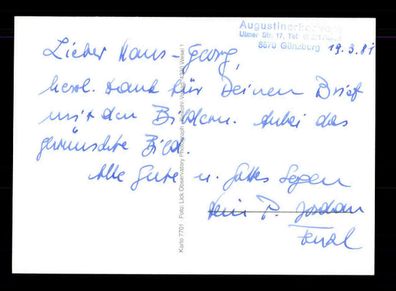 Augustinerkloster
Ulmer Str. 17, Tel.
8870 Günzburg
19.3.81
Lieber Hans-Georg,
herzl. Dank für Deinen Brief
mit den Bildern. Anbei das
gewünschte Bild.
Alles Gute u. Gottes Segen
Dein P. Jordan
Karte 7701 Foto: Lick Observatory